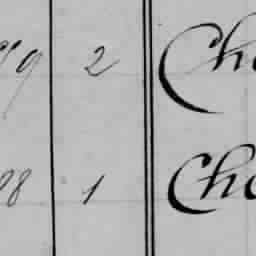 9 2 Cho
88 1 Cho